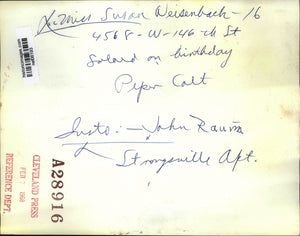 Miss Susan Weisenbach - 16
4568 - W - 146 th St
Soloed on birthday
Piper Colt
Insts: - John Rauma
Strongsville Apt.
A28916
CLEVELAND PRESS
FEB 7 1962
REFERENCE DEPT.